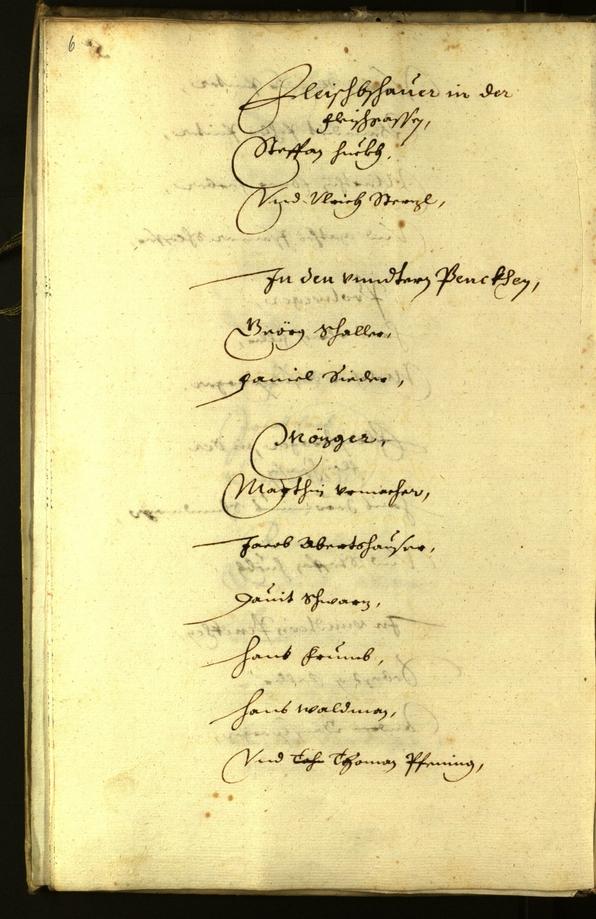 6
Fleischbschauer in der
fleischgassen,
Steffan Huebh,
Vnd Vlrich Stergl,
In den vnndtern Penckhen,
Geörg Schaller,
Daniel Sieder,
Mözger,
Marthin vrmacher,
Jacob Abertshauser,
Dauit Schwarz,
Hans Krumb,
Hans Waldman,
Vnd Thoman Pfening,